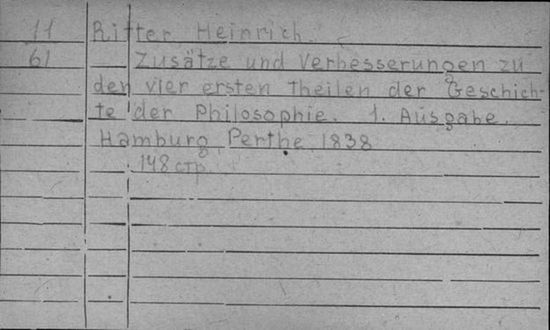 11 Ritter Heinrich.
61 Zusätze und Verbesserungen zu
den vier ersten Theilen der Geschich-
te der Philosophie. 1. Ausgabe.
Hamburg, Perthe, 1838
148 стр.